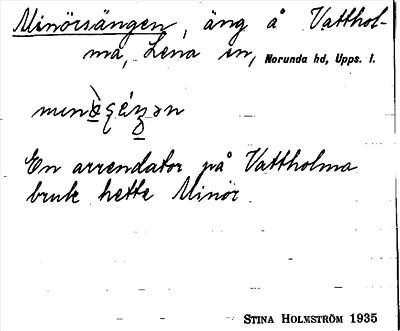 Minörsängen, äng å Vatthol-
ma, Lena sn, Norunda hd, Upps. l.
En arrendator på Vattholma
bruk hette Minör.
STINA HOLMSTRÖM 1935